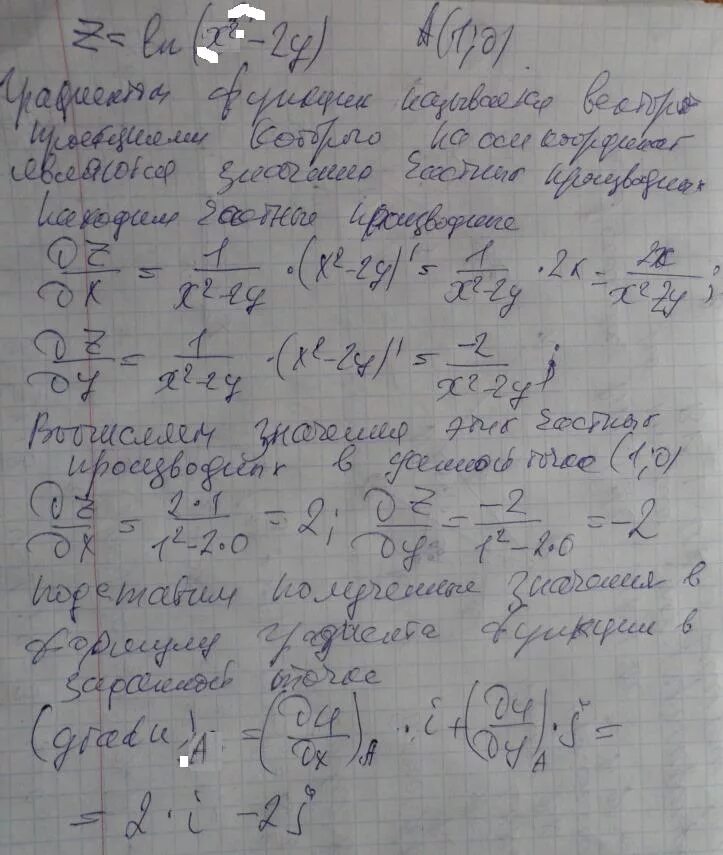 Z = ln(x² - 2y) A(1;0)
Градиентом функции называется вектор
проекциями которого на оси координат
являются значения частных производных
Находим частные производные
∂Z/∂x = 1/(x²-2y) · (x²-2y)' = 1/(x²-2y) · 2x = 2x/(x²-2y);
∂Z/∂y = 1/(x²-2y) · (x²-2y)' = -2/(x²-2y);
Вычисляем значения этих частных
производных в данной точке (1;0)
∂Z/∂x = 2·1/(1²-2·0) = 2; ∂Z/∂y = -2/(1²-2·0) = -2
подставим полученные значения в
формулу градиента функции в
заданной точке
(grad u)A = (∂u/∂x)A · i + (∂u/∂y)A · j =
= 2·i - 2j